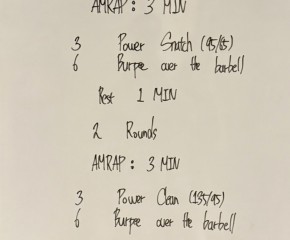 AMRAP: 3 MIN
3 Power Snatch (95/65)
6 Burpee over the barbell
Rest 1 MIN
2 Rounds
AMRAP: 3 MIN
3 Power Clean (135/95)
6 Burpee over the barbell